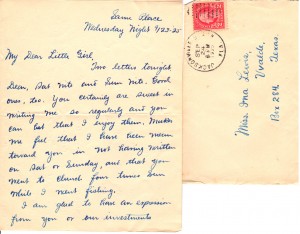 Same Place
Wednesday Night 9/23-25
My Dear Little Girl,
Two letters tonight
Dear, Sat nite and Sun nite. Good
ones, too. You certainly are sweet in
writing me so regularly and you
can bet that I enjoy them. Makes
me feel that I have been mean
toward you in not having written
on Sat or Sunday, and that you
went to church four times Sun
while I went fishing.
I am glad to have an expression
from you on our investments
JACKSONVILLE
FLA.
Miss Ona Lewis,
Uvalde,
Texas.
Box 284